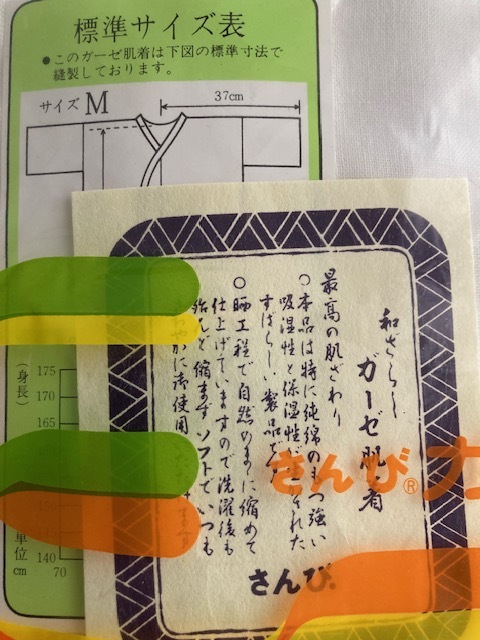 標準サイズ表
●このガーゼ肌着は下図の標準寸法で
縫製しております。
サイズ M
37cm
和ざらし
ガーゼ肌着
最高の肌ざわり
○本品は特に純綿のもつ強い
吸湿性と保湿性が
すばらしい製品で
○晒工程で自然のまゝに縮めて
仕上げていますので洗濯後も
殆んど縮まず ソフトでいつも
やかに御使用
さんび
さんび®
(身長)
175
170
165
140
70
単位
cm